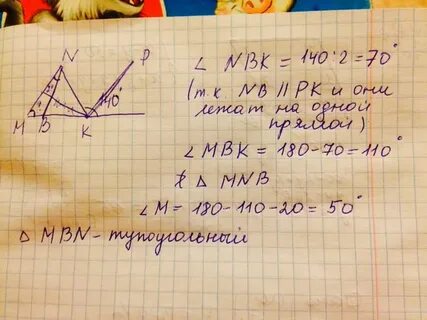 N
P
140°
M B
K
∠ NBK = 140:2 = 70°
(т.к. NB || PK и они
лежат на одной
прямой)
∠ MBK = 180-70 = 110°
△ MNB
∠ M = 180-110-20 = 50°
△ MBN - тупоугольный